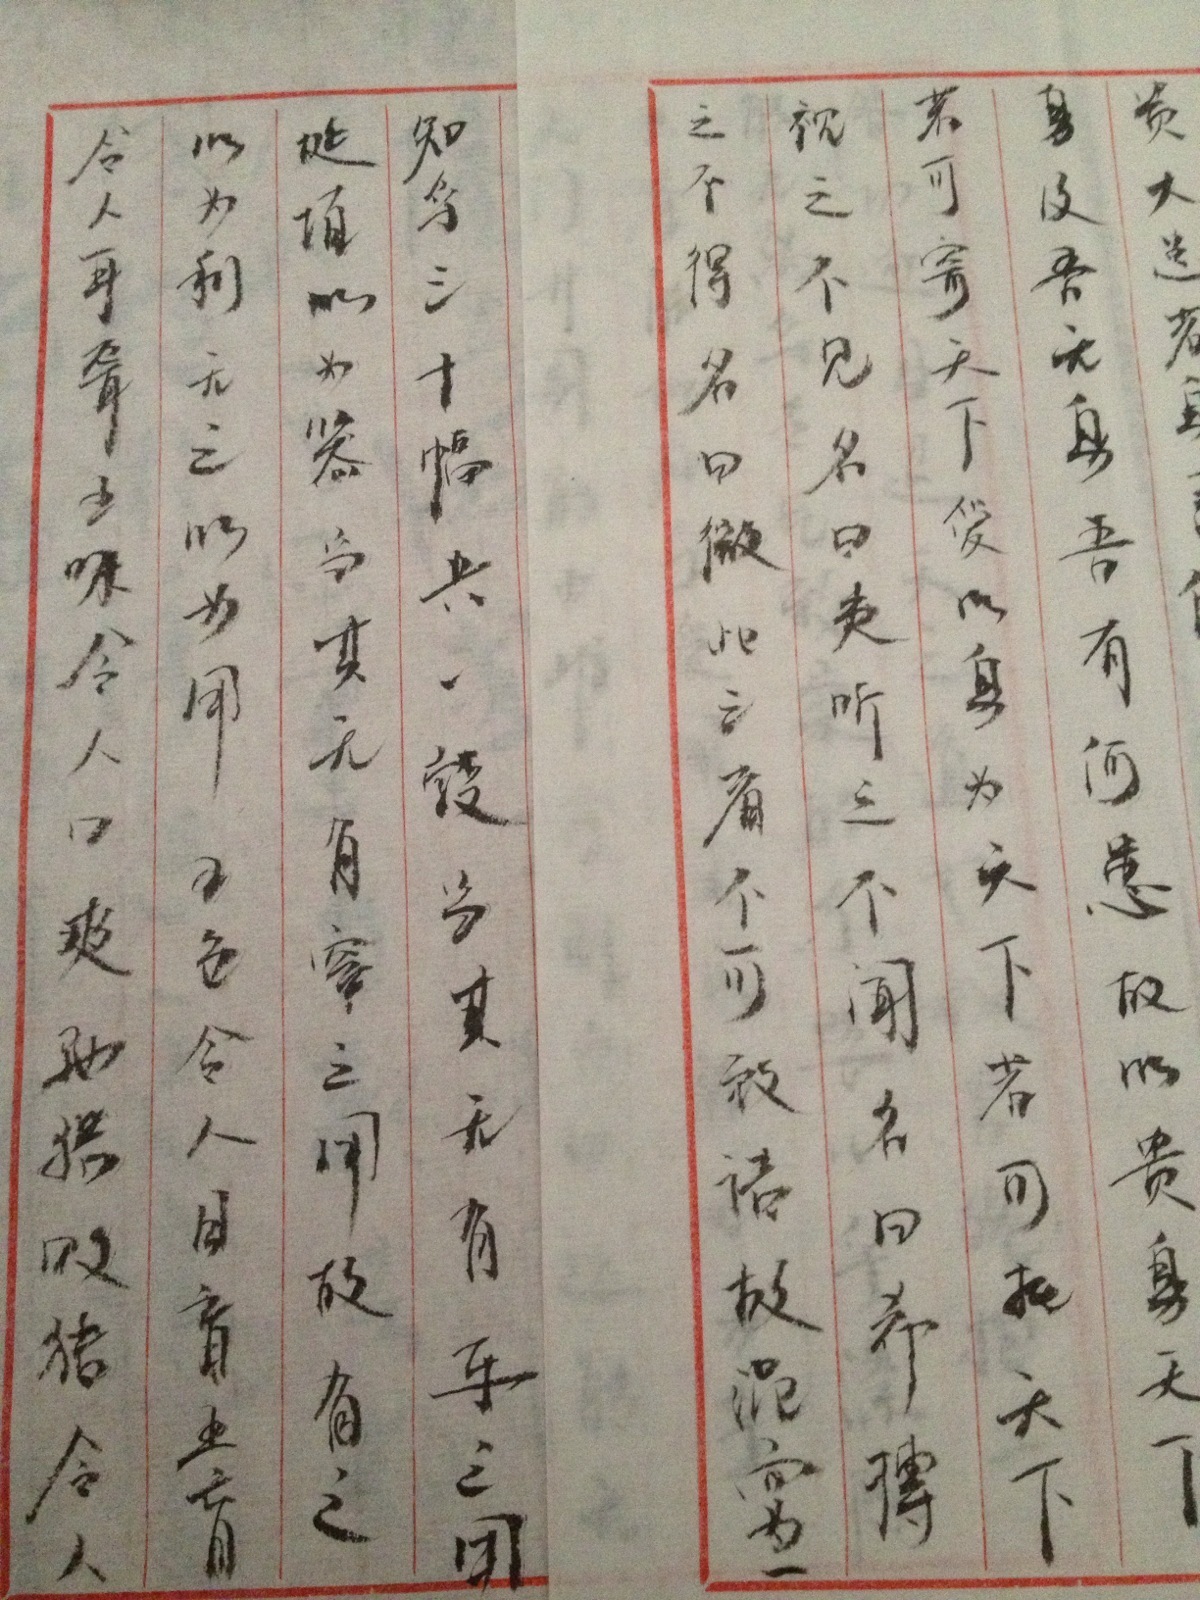 贵大患者身
身及吾无身吾有何患故以贵身天下
若可寄天下爱以身为天下者可托天下
视之不见名曰夷听之不闻名曰希搏
之不得名曰微此三者不可致诘故混而为一
知乎三十幅共一毂当其无有车之用
埏埴以为器当其无有室之用故有之
以为利无之以为用 五色令人目盲五音
令人耳聋五味令人口爽驰骋畋猎令人